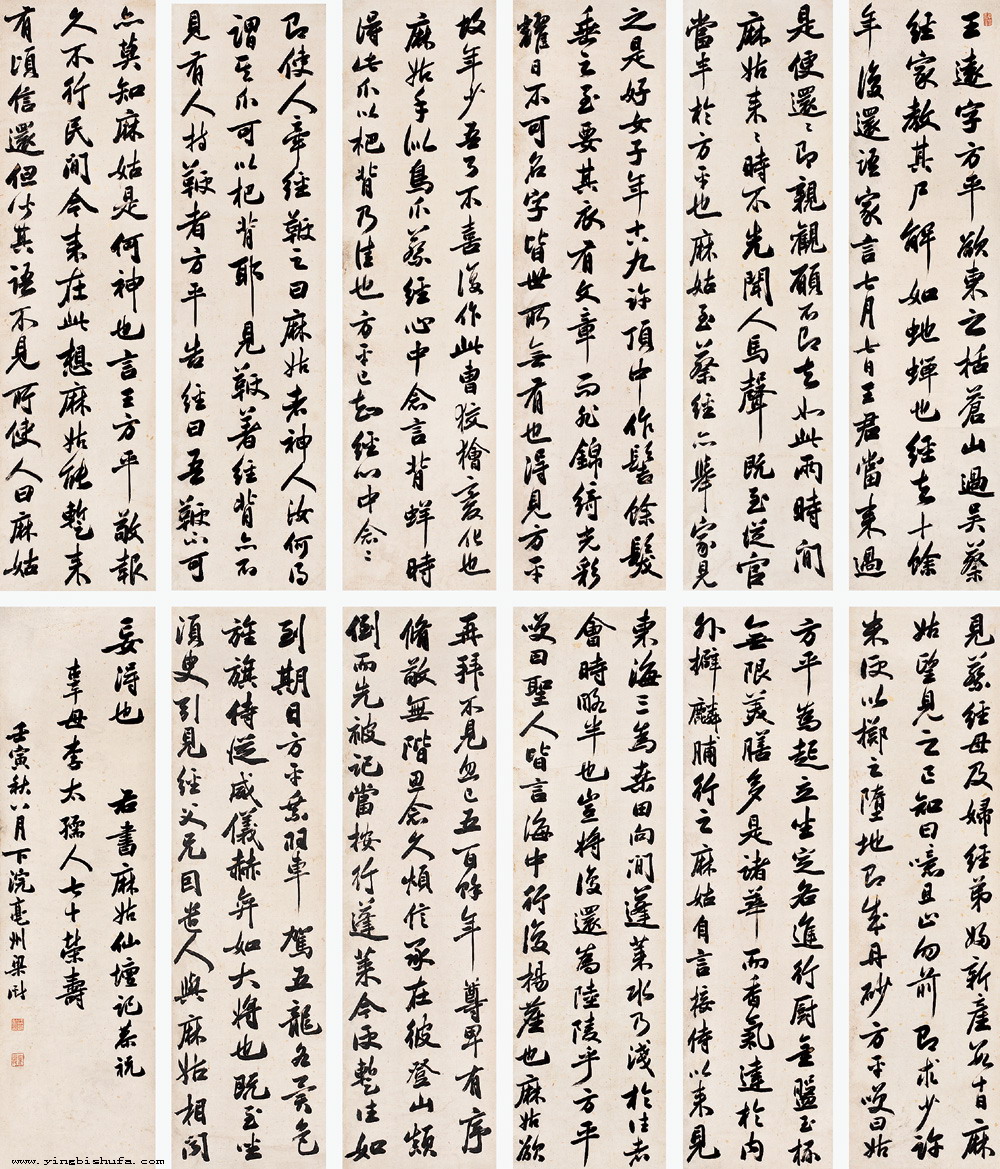 王遠字方平欲東之括蒼山過吳蔡
經家教其尸解如虵蟬也經去十餘
年後還語家言七月七日王君當來過
到期日方平乘羽車駕五龍各異色
旌旗侍從威儀赫奕如大將也既至坐
須臾引見經父兄因遣人與麻姑相聞
亦莫知麻姑是何神也言王方平敬報
久不行民間今來在此想麻姑能暫來
有頃信還但聞其語不見所使人曰麻姑
再拜不見忽已五百餘年尊卑有序
脩敬無階思念久煩信承在彼登山顛
倒而先被記當按行蓬萊今便暫往如
是便還〻即親觀願不即去如此兩時間
麻姑來〻時不先聞人馬聲既至從官
當半於方平也麻姑至蔡經亦舉家見
之是好女子年十八九許頂中作髻餘髮
垂之至要其衣有文章而非錦綺光彩
耀日不可名字皆世所無有也得見方平
方平為起立坐定各進行廚金盤玉杯
無限美膳多是諸華而香氣達於內
外擗麟脯行之麻姑自言接侍以來見
東海三為桑田向間蓬萊水乃淺於往者
會時略半也豈將復還為陸陵乎方平
笑曰聖人皆言海中行復揚塵也麻姑欲
見蔡經母及婦經弟婦新產數十日麻
姑望見之已知曰噫且止勿前即求少許
米便以擲之墮地即成丹砂方平笑曰姑
故年少吾了不喜復作此曹狡獪變化也
麻姑手似鳥爪蔡經心中念言背蛘時
得此爪以杷背乃佳也方平已知經心中念〻
即使人牽經鞭之曰麻姑者神人汝何忽
謂其爪可以杷背耶見鞭著經背亦不
見有人持鞭者方平告經曰吾鞭不可
妄得也 右書麻姑仙壇記恭祝
辜母李太孺人七十榮壽
壬寅秋八月下浣亳州梁巘
www.yingbishufa.com